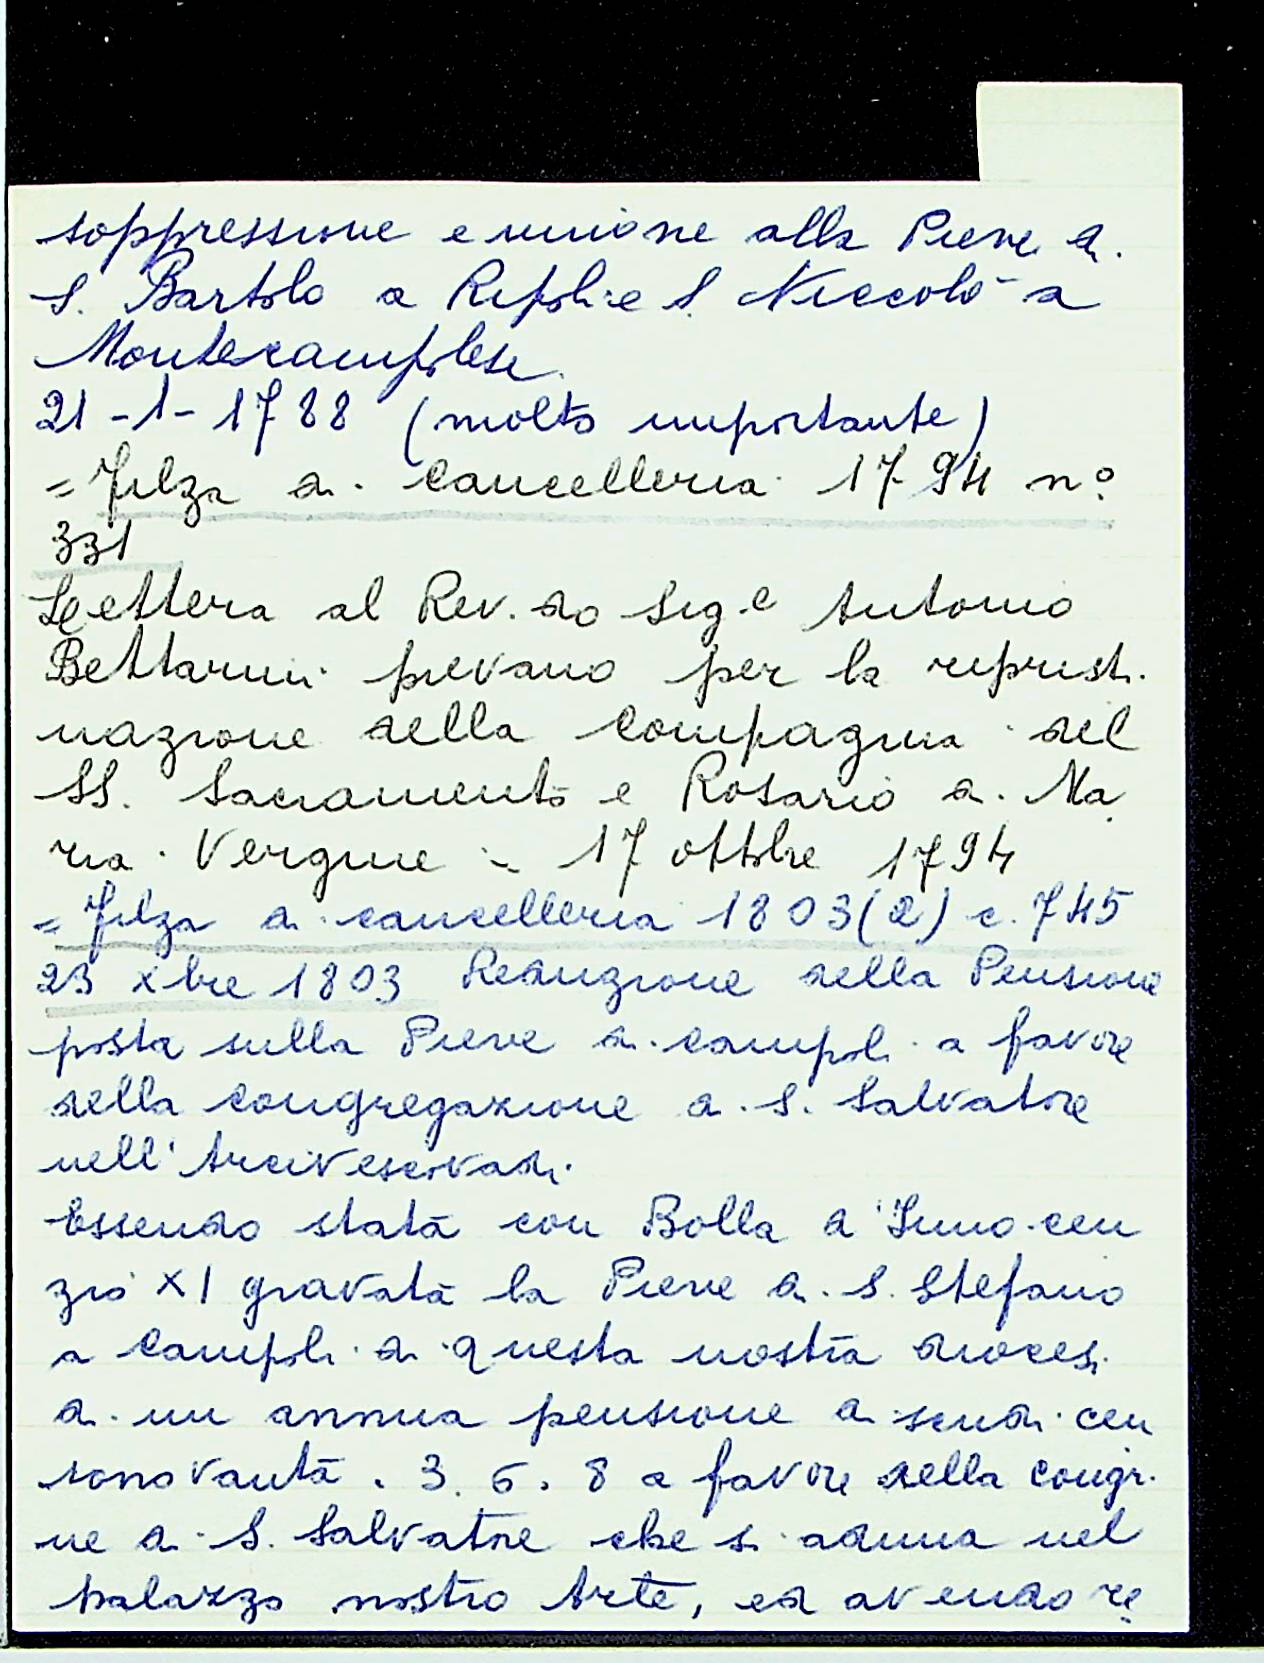 soppressione e unione alla Pieve di
S. Bartolo a Ripoli e S. Niccolò a
Montecampolese.
21-1-1788 (molto importante)
= Filza di Cancelleria 1794 n°
331
Lettera al Rev.do Sig.e Antonio
Bettarini pievano per la ripristi
nazione della Compagnia del
SS. Sacramento e Rosario di Ma
ria Vergine - 17 ottobre 1794
= Filza di cancelleria 1803(2) c. 745
23 xbre 1803 Reduzione della Pensione
posta sulla Pieve di Campoli a favore
della Congregazione di S. Salvatore
nell'Arcivescovadi.
Essendo stata con Bolla d'Innocen
zio XI gravata la Pieve di S. Stefano
a Campoli di questa nostra diocesi
di un annua pensione di scudi cen
tonovanta. 3. 6. 8 a favore della congr.
ne di S. Salvatore che si aduna nel
palazzo nostro Arte, ed avendo re